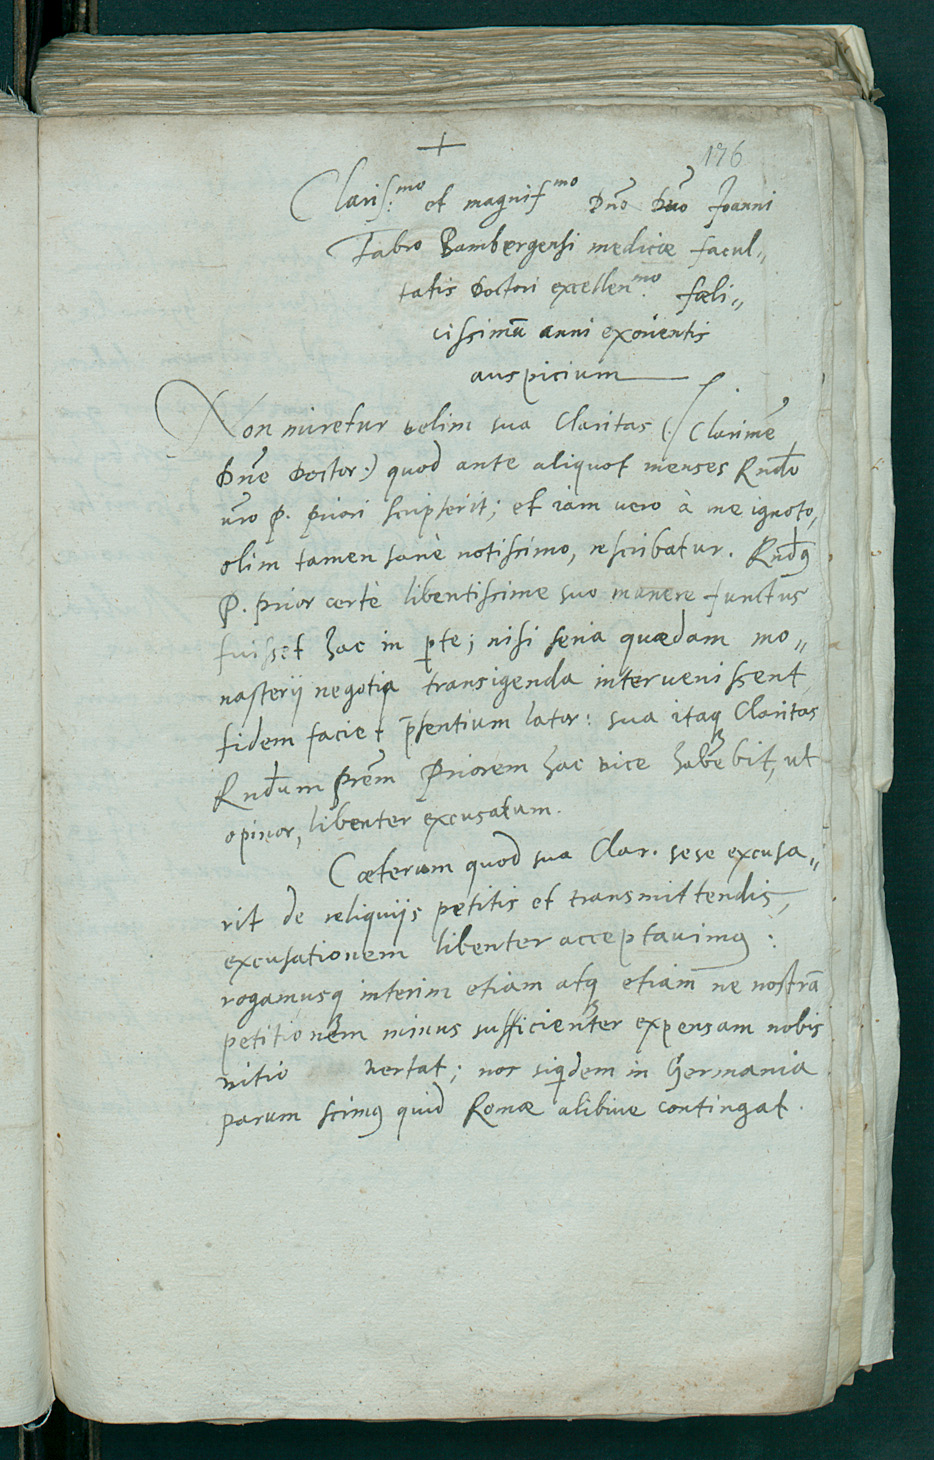 +
176
Claris:mo et magnifmo Dño Dño Joanni
Fabro Bambergensi medicæ facul„
tatis Doctori excellenmo. fæli„
cissimũ anni exorientis
auspicium
Non miretur velim sua Claritas (:/ Clarime
Dñe Doctor:) quod ante aliquot menses Rndo
uro P. priori scripserit; et iam vero à me ignoto,
olim tamen sanè notissimo, rescribatur. Rndꝰ
P. prior certè libentissime suo munere functus
fuisset hac in ꝑte; nisi seria quædam mo„
nasterij negotia transigenda intervenissent,
fidem faciet p̃sentium lator: sua itaq Claritas
Rndum Prem Priorem hac vice habebit, ut
opinor, libenter excusatum.
Cæterum quod sua Clar. sese excusa„
rit de reliquijs petitis et transmittendis,
excusationem libenter acceptauimꝰ:
rogamusq interim etiam atq etiam ne nostrã
petitionem minus sufficienter expensam nobis
vitio vertat; nos siqdem in Germania
parum scimꝰ quid Romæ alibiue contingat.